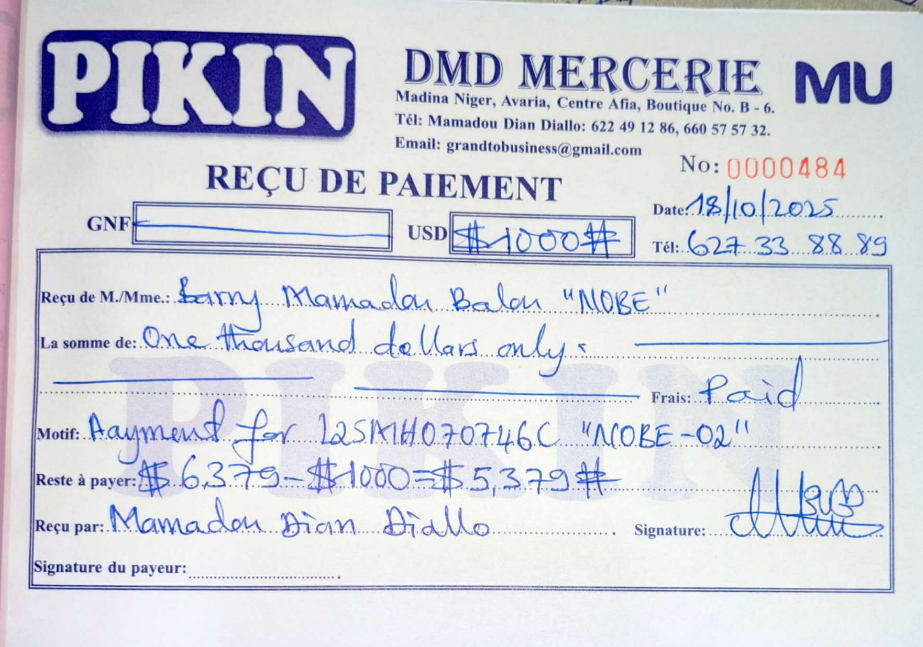 PIKIN
DMD MERCERIE
MU
Madina Niger, Avaria, Centre Afia, Boutique No. B - 6.
Tél: Mamadou Dian Diallo: 622 49 12 86, 660 57 57 32.
Email: grandtobusiness@gmail.com
No: 0000484
REÇU DE PAIEMENT
Date: 18/10/2025
GNF
USD $1000#
Tél: 627 33 88 89
Reçu de M./Mme.: Barry Mamadou Balou "NOBE"
La somme de: One thousand dollars only
Frais: Paid
Motif: Payment for "NOBE-02"
Reste à payer: $ 6,379-$1000=$5,379#
Reçu par: Mamadou Dian Diallo
Signature:
Signature du payeur:
PIKIN